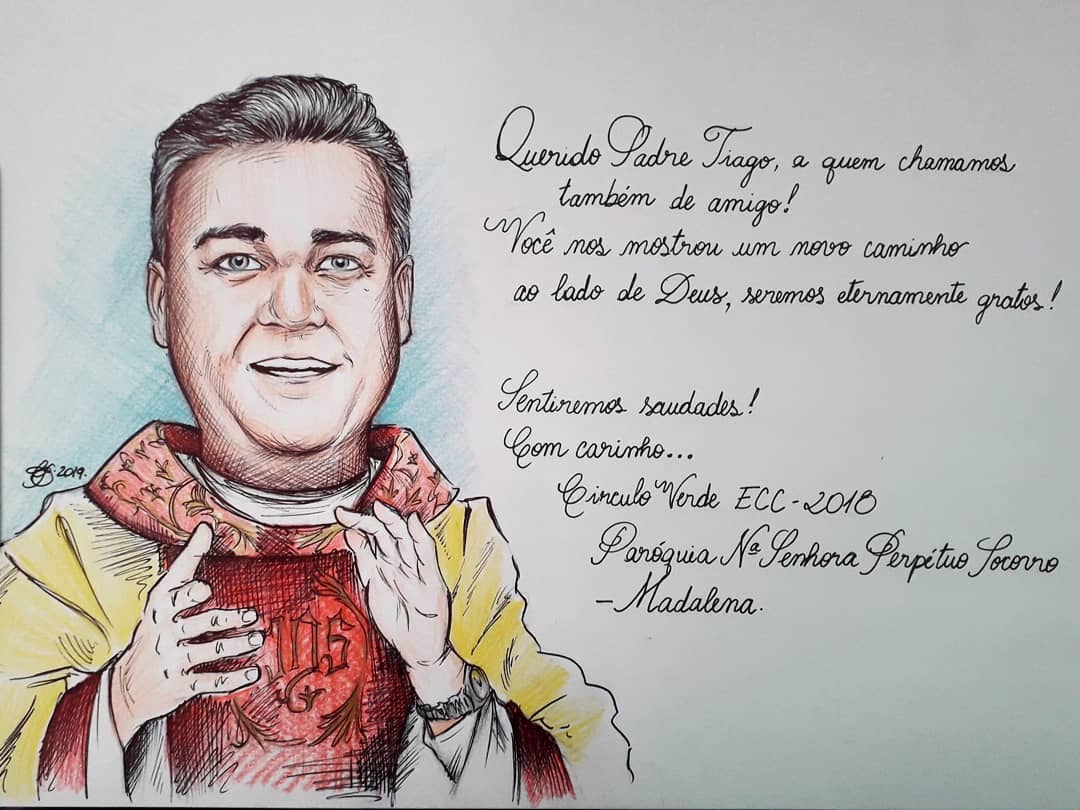 Querido Padre Tiago, a quem chamamos
também de amigo!
Você nos mostrou um novo caminho
ao lado de Deus, seremos eternamente gratos!
Sentiremos saudades!
Com carinho...
Circulo Verde ECC-2018
Paróquia Nª Senhora Perpétuo Socorro
-Madalena.
2019.